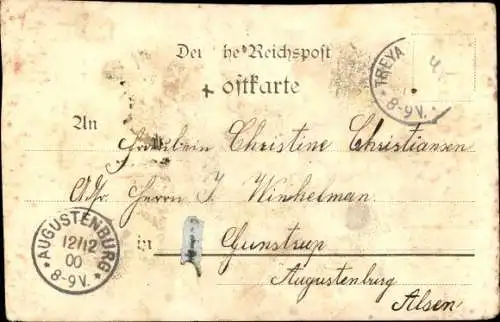 De he Reichspost
ostkarte
TREYA
8-9V.
4,-
An Fräulein Christine Christiansen
Adr. Herrn J. Winkelman.
in Gunstrup
Augustenburg
Alsen
AUGUSTENBURG
12/12
00
8-9V.